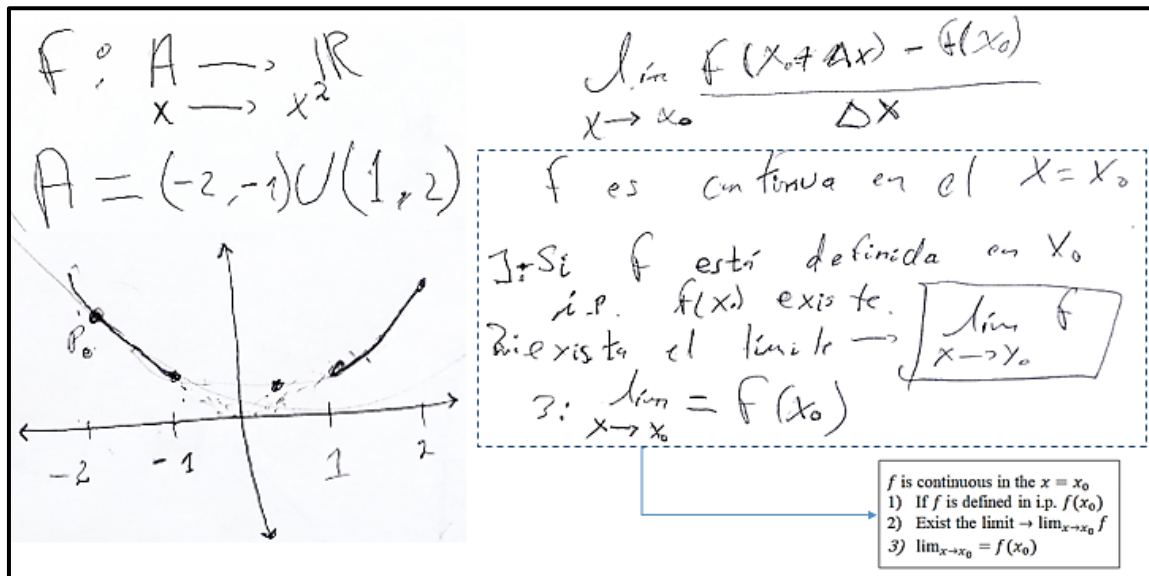 f: A → ℝ
x → x²
A = (-2,-1) ∪ (1,2)
P₀
-2 -1 1 2
lím f(x₀+Δx) - f(x₀)
x→x₀ Δx
f es continua en el x = x₀
1: Si f está definida en x₀
i.p. f(x₀) existe.
2: exista el límite → lím f
x→x₀
3: lím = f(x₀)
x→x₀
f is continuous in the x = x₀
1) If f is defined in i.p. f(x₀)
2) Exist the limit → limₓ→ₓ₀ f
3) limₓ→ₓ₀ = f(x₀)